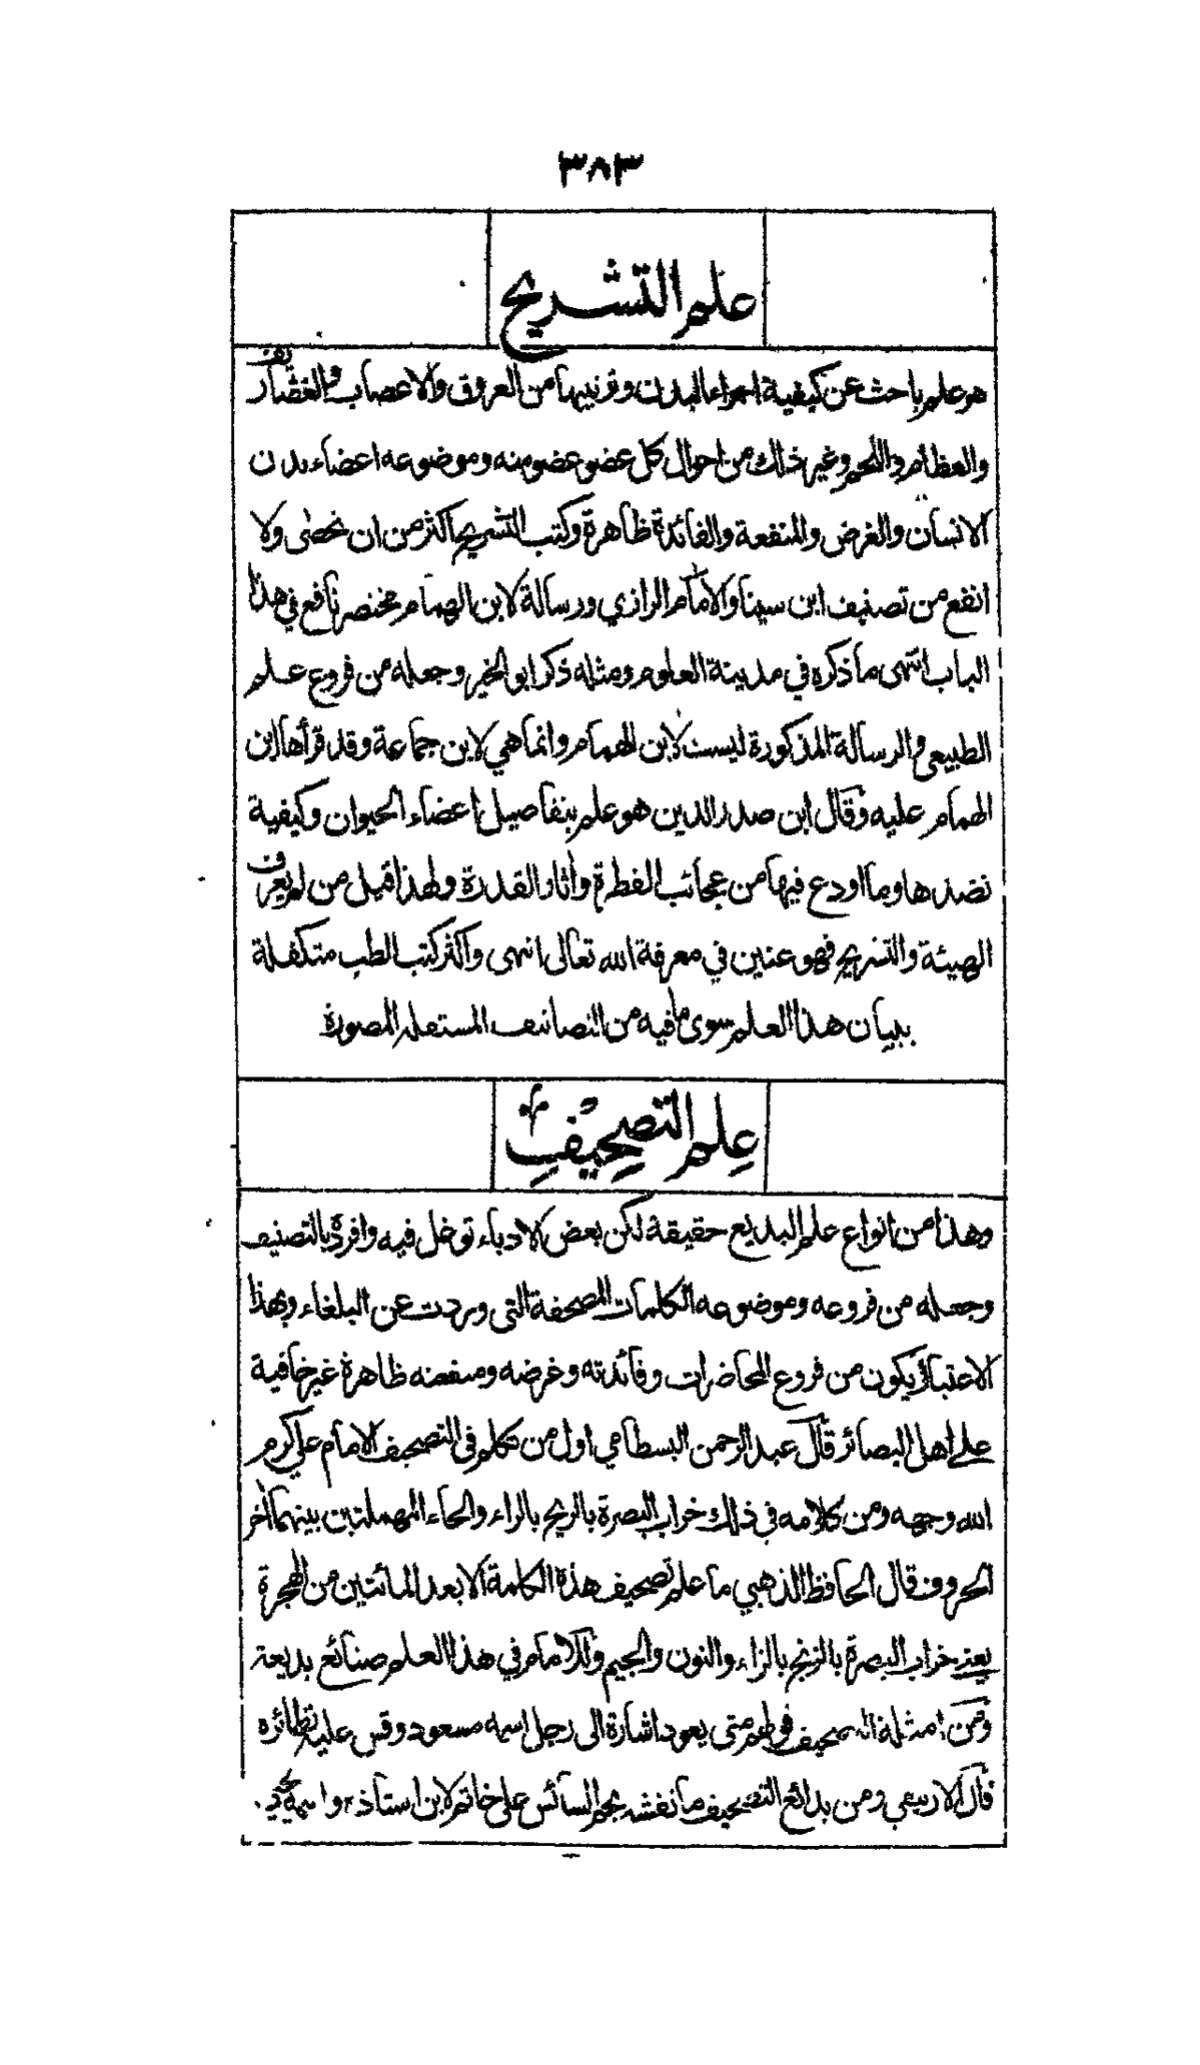 ٣٨٣
علم التشريح
هو علم باحث عن كيفية اجزاء البدن وترتيبها من العروق والاعصاب والغضاريف
والعظام واللحم وغير ذلك من احوال كل عضو عضو منه وموضوعه اعضاء بدن
الانسان والغرض والمنفعة والفائدة ظاهرة وكتب التشريح اكثر من ان تحصى ولا
انفع من تصنيف ابن سينا والامام الرازي ورسالة لابن الهمام مختصر نافع في هذا
الباب انتهى ما ذكره في مدينة العلوم ومثله ذكر ابو الخير وجعله من فروع علم
الطبيعي والرسالة المذكورة ليست لابن الهمام وانما هي لابن جماعة وقد قرأها ابن
الهمام عليه وقال ابن صدر الدين هو علم بتفاصيل اعضاء الحيوان وكيفية
نضدها وما اودع فيها من عجائب الفطرة وأثار القدرة ولهذا قيل من لم يعرف
الهيئة والتشريح فهو عنين في معرفة الله تعالى انتهى واكثر كتب الطب متكفلة
ببيان هذا العلم سوى ما فيه من التصانيف المستقلة المصورة
علم التصحيف
وهذا من انواع علم البديع حقيقة لكن بعض الادباء توغل فيه وافرده بالتصنيف
وجعله من فروعه وموضوعه الكلمات المصحفة التى وردت عن البلغاء وبهذا
الاعتبار يكون من فروع المحاضرات وفائدته وغرضه ومنفعته ظاهرة غير خافية
على اهل البصائر قال عبد الرحمن البسطامي اول من تكلم فى التصحيف الامام علي كرم
الله وجهه ومن كلامه في ذلك خراب البصرة بالريح بالراء والحاء المهملتين بينهما أخر
الحروف قال الحافظ الذهبي ما علم تصحيف هذه الكلمة الا بعد المائتين من الهجرة
يعنى خراب البصرة بالزنج بالزاء والنون والجيم وللامام في هذا العلم صنائع بديعة
ومن امثلة التصحيف قولهم متى يعود اشارة الى رجل اسمه مسعود وقس عليه نظائره
قال الاربيعي ومن بدائع التصحيف ما نقشه نجم السائس على خاتم لابن استاذه واسمه يحيى.